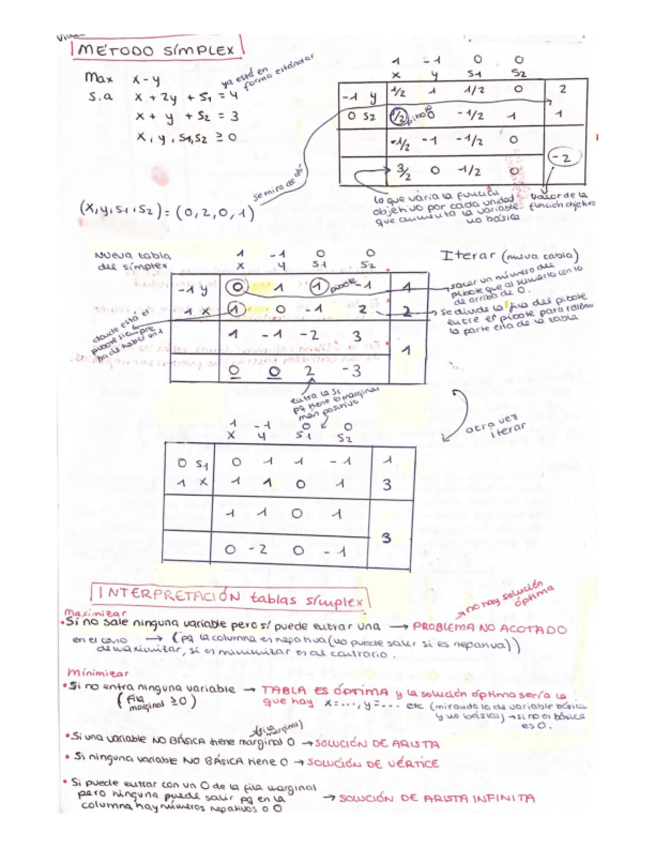 MÉTODO SÍMPLEX
Max x - y
s.a x + 2y + S1 = 4
x + y + S2 = 3
x, y, S1, S2 ≥ 0
ya está en
forma estándar
(x, y, S1, S2) = (0, 2, 0, 1)
se mira de ahí
1 -1 0 0
x y S1 S2
-1 y 1/2 1 1/2 0 2
0 S2 1/2 0 -1/2 1 1
pibote
-1/2 -1 -1/2 0
3/2 0 -1/2 0
-2
lo que varía la función
objetivo por cada unidad
que aumenta la variable
no básica
valor de la
función objetivo
Nueva tabla
del símplex
1 -1 0 0
x y S1 S2
-1 y 0 1 1 pibote -1 1
1 x 1 0 -1 2 2
1 -1 -2 3
1
0 0 2 -3
donde está el
pibote siempre
ha de haber un 1
Iterar (nueva tabla)
sacar un número del
pibote que al sumarlo con lo
de arriba de 0.
se divide la fila del pibote
entre el pibote para rellenar
la parte esta de la tabla
entra la S1
pq tiene el marginal
más positivo
otra vez
iterar
1 -1 0 0
x y S1 S2
0 S1 0 1 1 -1 1
1 x 1 1 0 1 3
1 1 0 1
3
0 -2 0 -1
INTERPRETACIÓN tablas símplex
no hay solución
óptima
Maximizar
• Si no sale ninguna variable pero sí puede entrar una → PROBLEMA NO ACOTADO
en el caso → (pq la columna es negativa (no puede salir si es negativa))
de maximizar, si es minimizar es al contrario.
Minimizar
• Si no entra ninguna variable → TABLA ES ÓPTIMA y la solución óptima sería la
(fila marginal ≥ 0) que hay x=..., y=... etc (mirando lo de variable básica
y no básica) → si no es básica
es 0.
(fila marginal)
• Si una variable NO BÁSICA tiene marginal 0 → SOLUCIÓN DE ARISTA
• Si ninguna variable NO BÁSICA tiene 0 → SOLUCIÓN DE VÉRTICE
• Si puede entrar con un 0 de la fila marginal
pero ninguna puede salir pq en la
columna hay números negativos o 0 → SOLUCIÓN DE ARISTA INFINITA